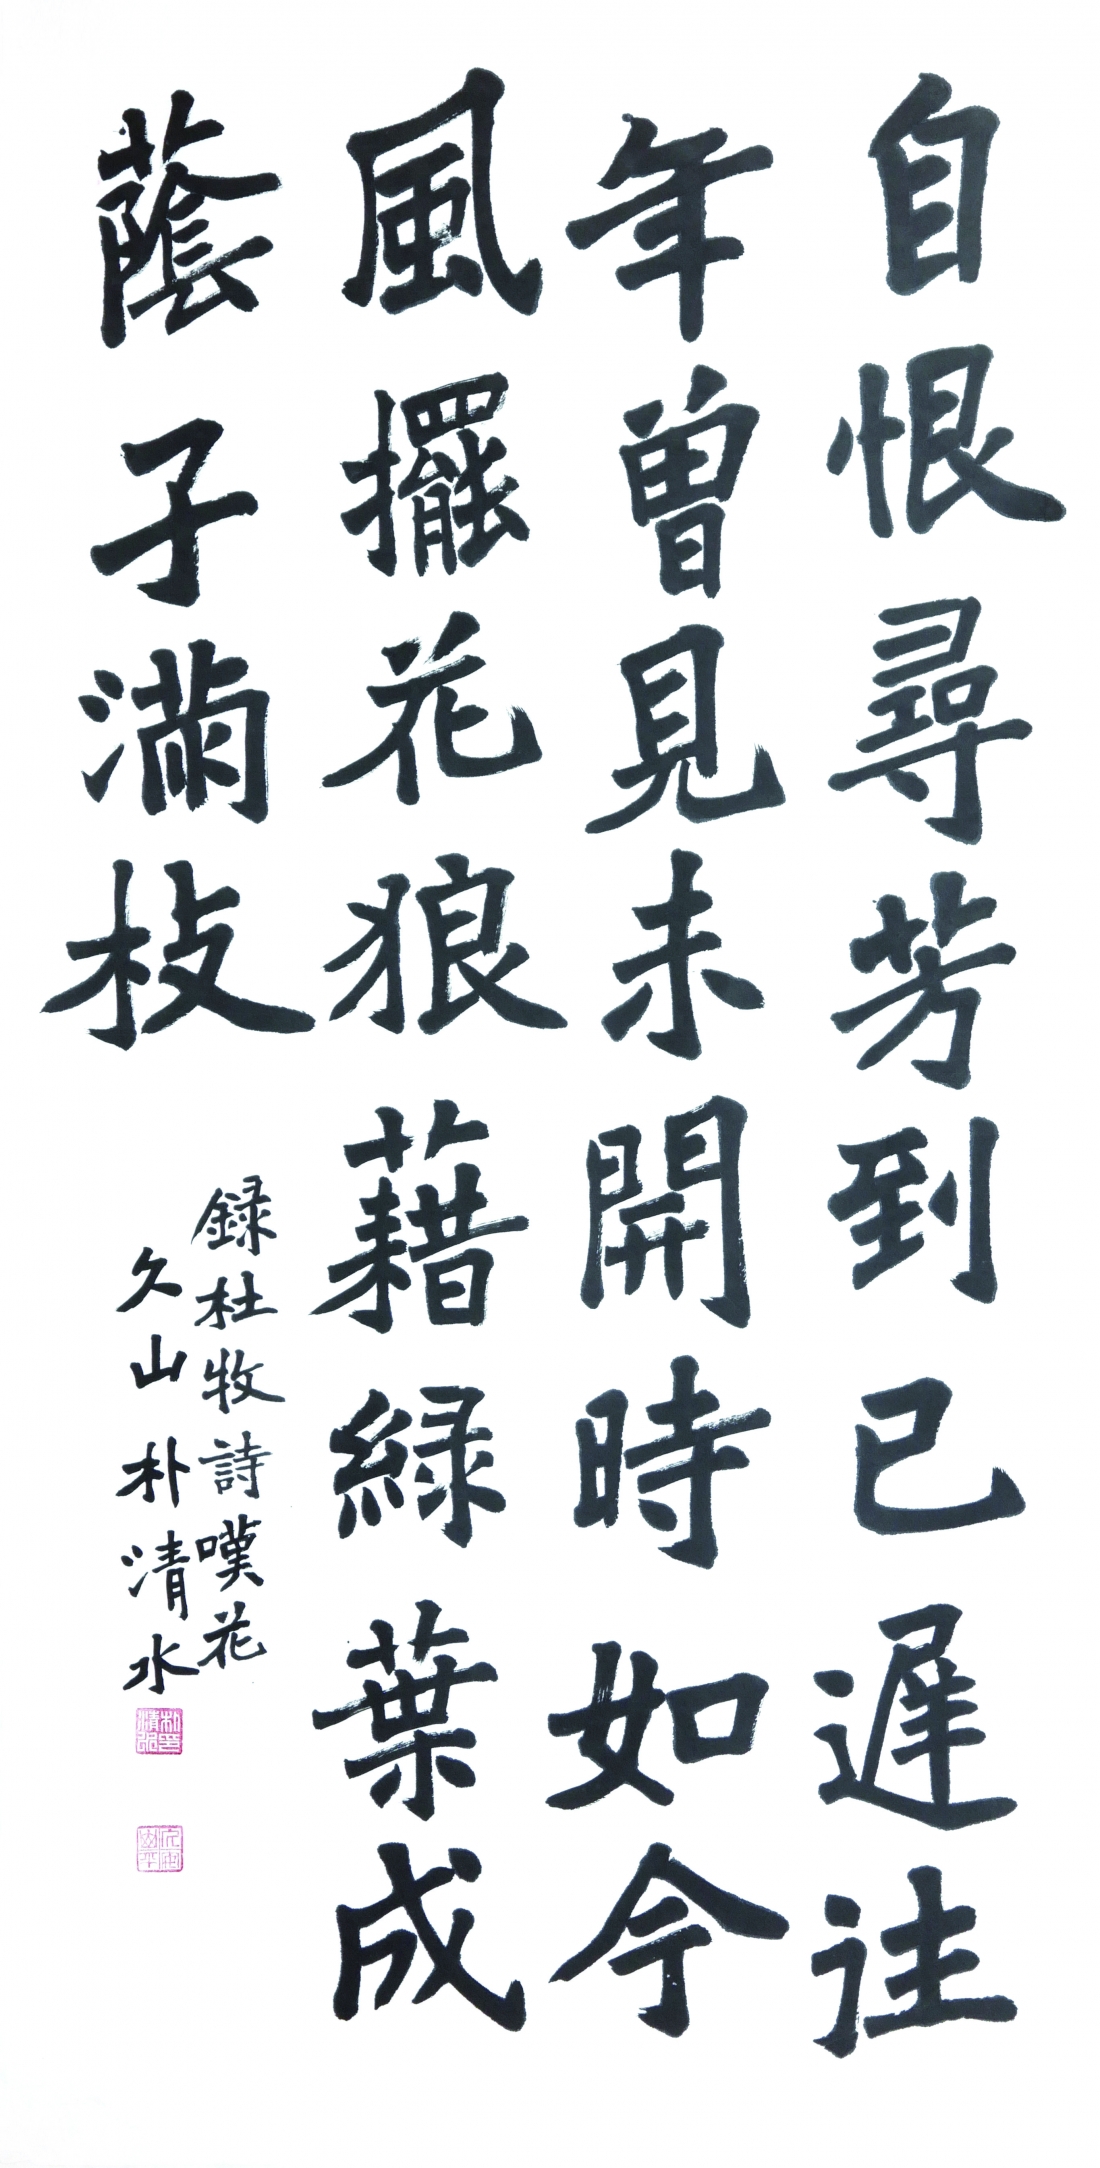 自恨尋芳到已遲往
年曾見未開時如今
風擺花狼藉綠葉成
蔭子滿枝
録杜牧詩嘆花
久山朴清水